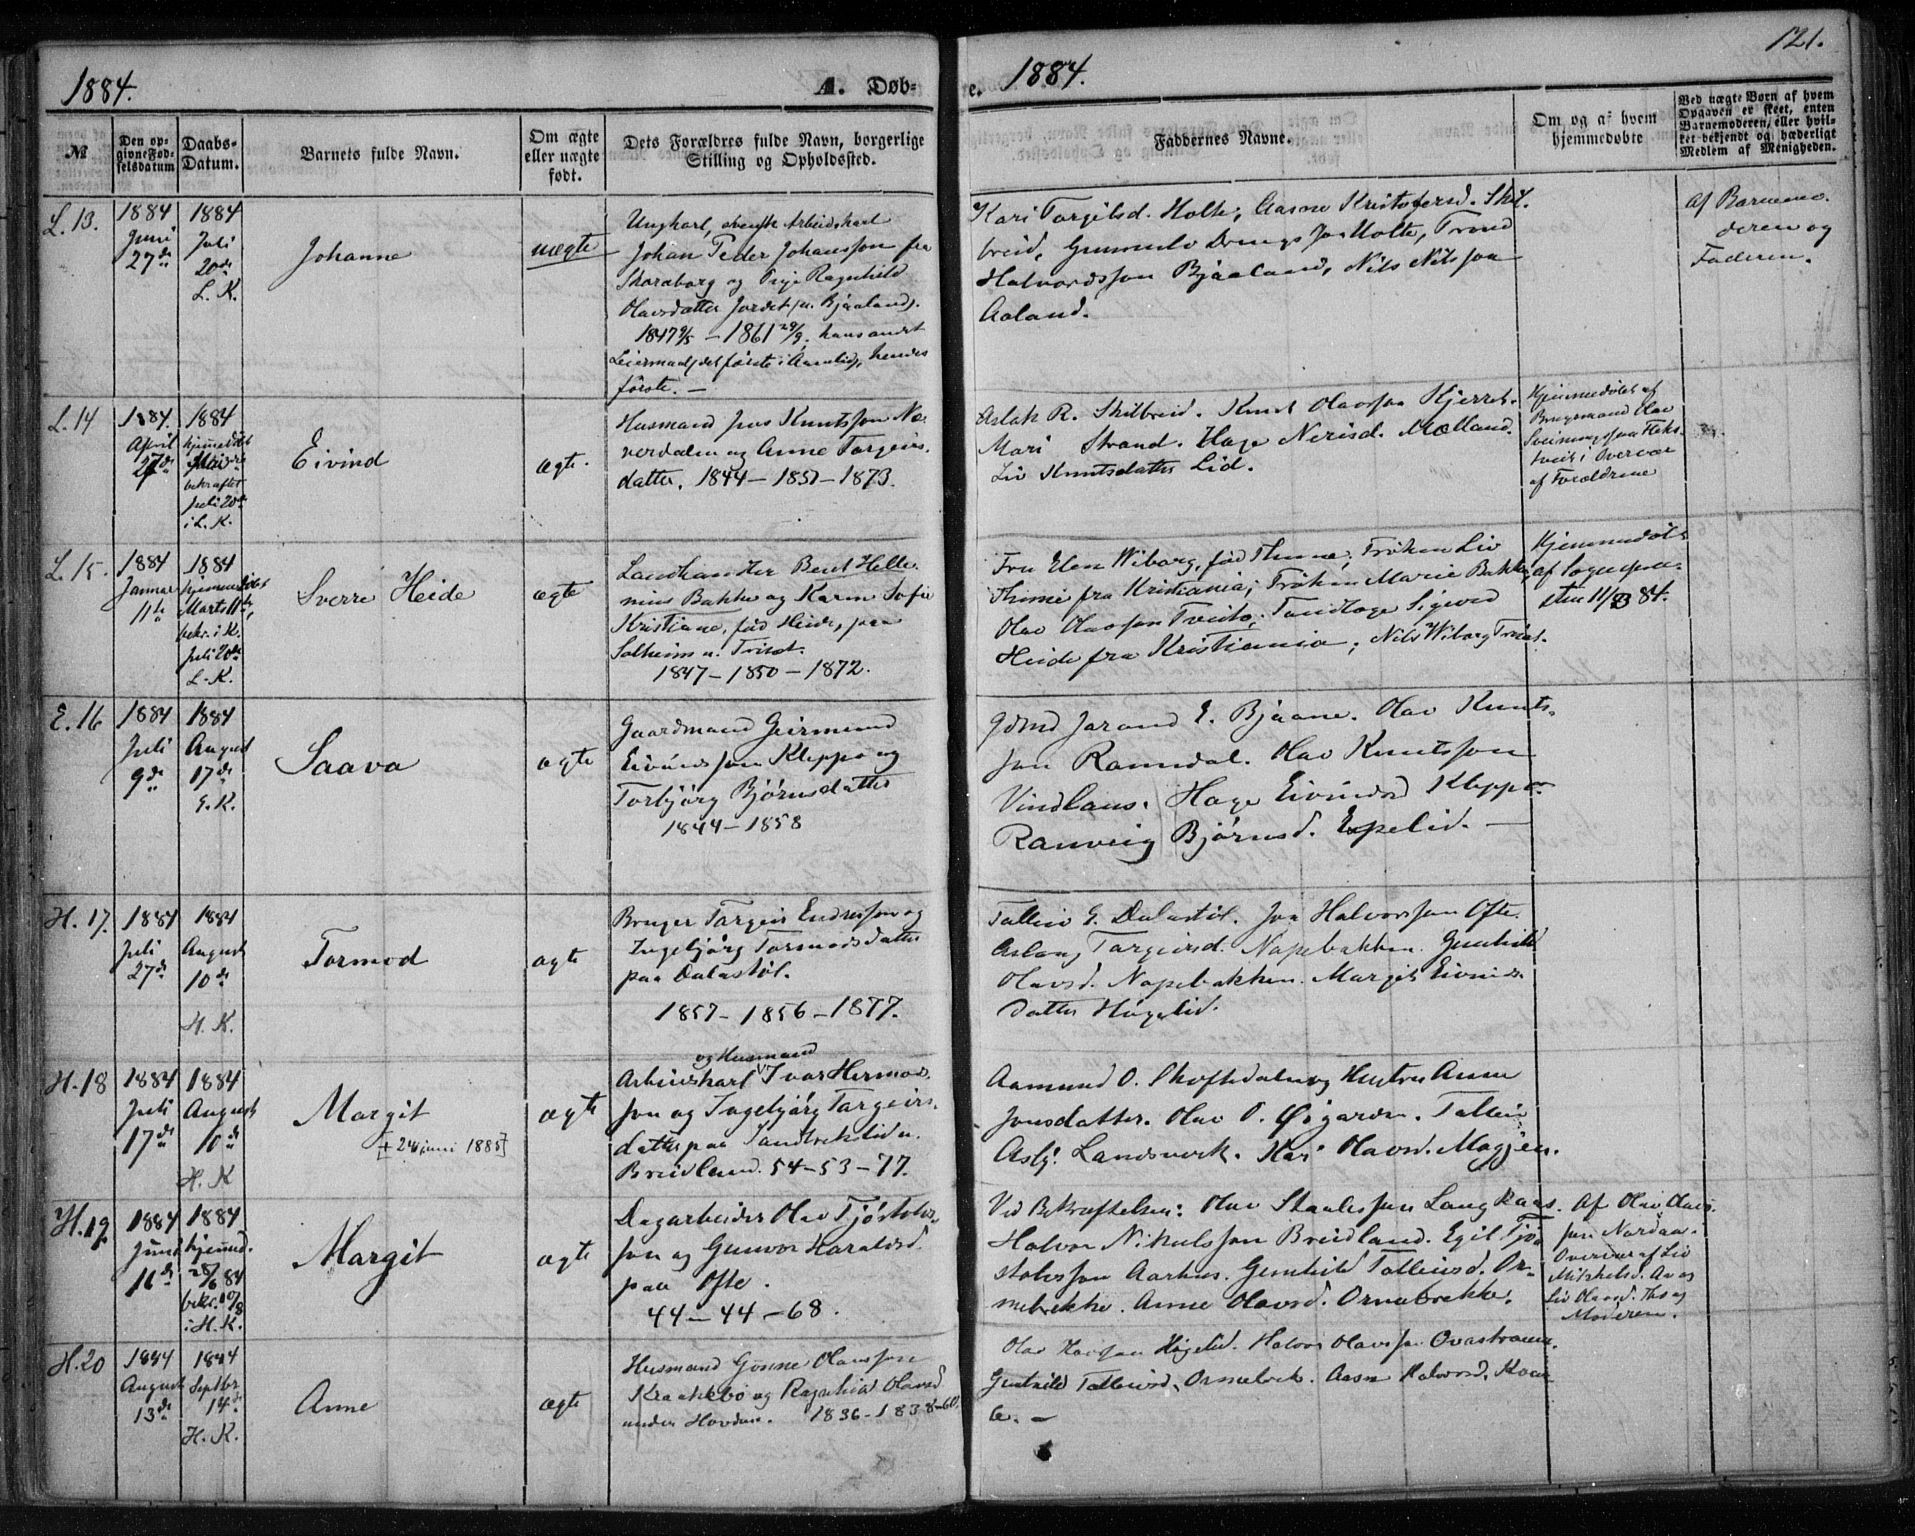 1884.
A. Døb-
e.
1884.
121.
№
Den op-
givne Fød-
selsdatum
Daabs-
Datum.
Barnets fulde Navn.
Om ægte
eller uægte
født.
Dets Forældres fulde Navn, borgerlige
Stilling og Opholdssted.
Faddernes Navne.
Om og af hvem
hjemmedøbte
Ved uægte Børn af hvem
Opgaven er skeet, enten
Barnemoderen, eller hvil-
ket bekjendt og hæderligt
Medlem af Menigheden.
L. 13.
1884
Juni
27de
1884
Juli
20de
L. K.
Johanne
uægte
Ungkarl, svensk Arbeidskarl
Johan Peder Johansson fra
Skaraborg og Pige Ragnhild
Olavsdatter Jordet u. Bjaaland.
1847 - 1861 29/9, hans andet
Leiermaal, det første i Aamlid, hendes
første. —
Kari Targilsd. Holte, Aasne Kristofersd. Skil-
breid, Gunnulv Drengs Jon Holte, Trond
Halvordsson Bjaaland, Nils Nilsson
Aaland.
Af Barnemo-
deren og
Faderen.
L. 14
1884.
April
27de
1884
hjemmedöbt
bekræftet
Juli 20de
i L. K.
Eivind
ægte.
Husmand Jens Knutsson Næ-
verdalen og Anne Torgeirs-
datter. 1844 - 1851 - 1873.
Aslak R. Skilbreid. Knut Olavsson Kjerret.
Mari Strand. Hæge Nerisd. Mælland.
Liv Knutsdatter Lid.
Hjemmedöbt af
Brugsmand Olav
Sveinungsson Fleks-
tveit i Overvær
af Forældrene
L. 15.
1884
Januar
11te
1884
hjemmedöbt
Marts 11te,
bekr. i K.
Juli 20de
L. K.
Sverre Heide
ægte
Landhandler Bent Helle-
nius Bakke og Karen Sofie
Kristiane, fød Heide, paa
Solheim u. Triset.
1847 - 1850 - 1872.
Fru Elen Wiborg, fød Thime, Frøken Liv
Thime fra Kristiania; Frøken Marie Bakke,
Olav Olavsson Tveito, Tandlæge Sigurd
Heide fra Kristiania; Nils Wiborg Triset.
Hjemmedöbt
af Sognepræ-
sten 11/3 84.
E. 16
1884
Juli
9de
1884
August
17de
E. K.
Saava
ægte
Gaardmand Geirmund
Eivindsson Kleppo og
Torbjörg Björnsdatter
1844 - 1858
Gdmd Jarand E. Bjaane. Olav Knuts-
son Ramndal. Olav Knutsson
Vindlaus. Hæge Eivindsd Kleppo.
Ranveig Björnsd. Espelid. —
H. 17.
1884
Juli
27de
1884
August
10de
H. K.
Tormod
ægte
Bruger Targeir Endresson og
Ingebjörg Tormodsdatter
paa Dalastöl.
1857 - 1856 - 1877.
Talleiv E. Dalastöl. Jon Halvorsson Ofte.
Aslaug Targeirsd. Napebakken. Gunhild
Olavsd. Napebakken. Margit Eivinds-
datter Högelid.
H. 18
1884
Juli
17de
1884
August
10de
H. K
Margit
[+ 24 juni 1885]
ægte
og Husmand
Arbeidskarl Ivar Hermods-
son og Ingebjörg Targeirs-
datter paa Sandbrekklid u.
Breidland. 54 - 53 - 77.
Aamund O. Skoftedalen og Hustru Anne
Jonsdatter. Olav O. Øigarden. Talleiv
Asbj. Landsverk. Kari Olavsd. Magjen.
H. 19.
1884
Juni
16de
1884
hjemd.
28/6 84
bekr. 10/8
i H. K.
Margit
ægte
Dagarbeider Olav Tjöstolvs-
son og Gunvor Haraldsd.
paa Ofte.
44 - 44 - 68.
Ved Bekræftelsen: Olav Staalesson Langkaas.
Halvor Nikulsson Breidland. Egil Tjö-
stolvsson Aarhus. Gunhild Talleivsd. Or-
mebrekke. Anne Olavsd. Ormebrekke.
Af Olav Olavs-
son Nordaa.
Overvær af Liv
Mikkelsd. Aas
Liv Olavsd. Ths og
Moderen.
H. 20
1884
August
13de
1884
Septbr
14de
H. K.
Anne
ægte
Husmand Gonne Olavsson
Kraakebö og Ragnhild Olavsd
under Hovden. 1836 - 1838 - 60
Olav Högelid. Halvor Olavsson Ovastraum.
Gunhild Talleivsd. Ormebrek. Aasne Halvorsd,